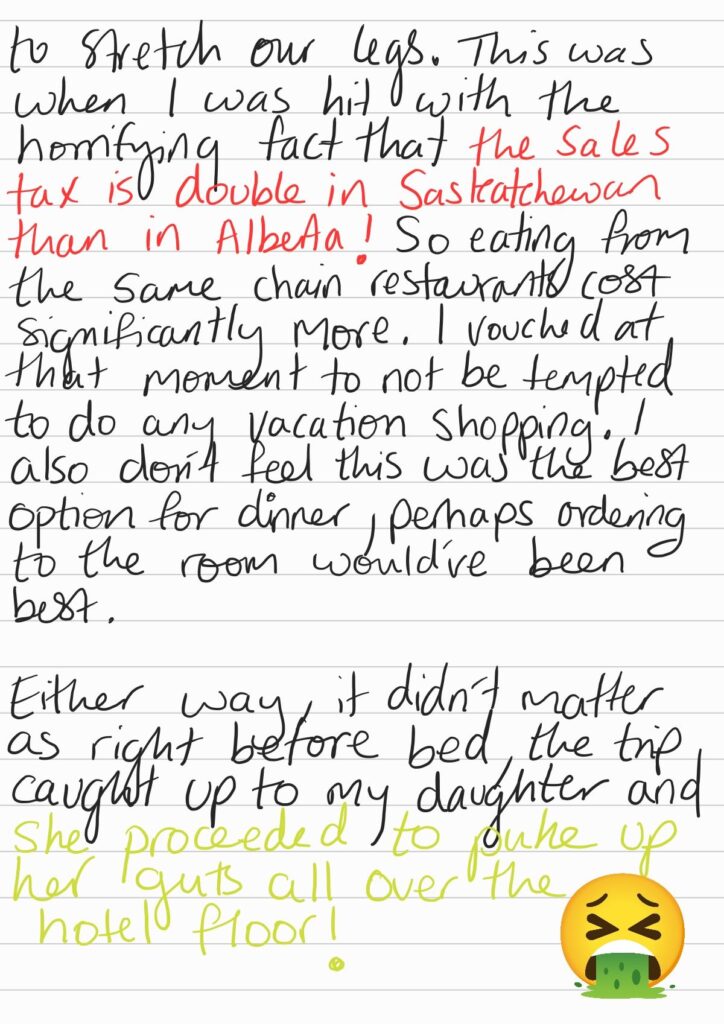 to stretch our legs. This was
when I was hit with the
horrifying fact that the sales
tax is double in Saskatchewan
than in Alberta! So eating from
the same chain restaurants cost
significantly more. I vouched at
that moment to not be tempted
to do any vacation shopping. I
also don't feel this was the best
option for dinner, perhaps ordering
to the room would've been
best.
Either way, it didn't matter
as right before bed, the trip
caught up to my daughter and
she proceeded to puke up
her guts all over the
hotel floor!